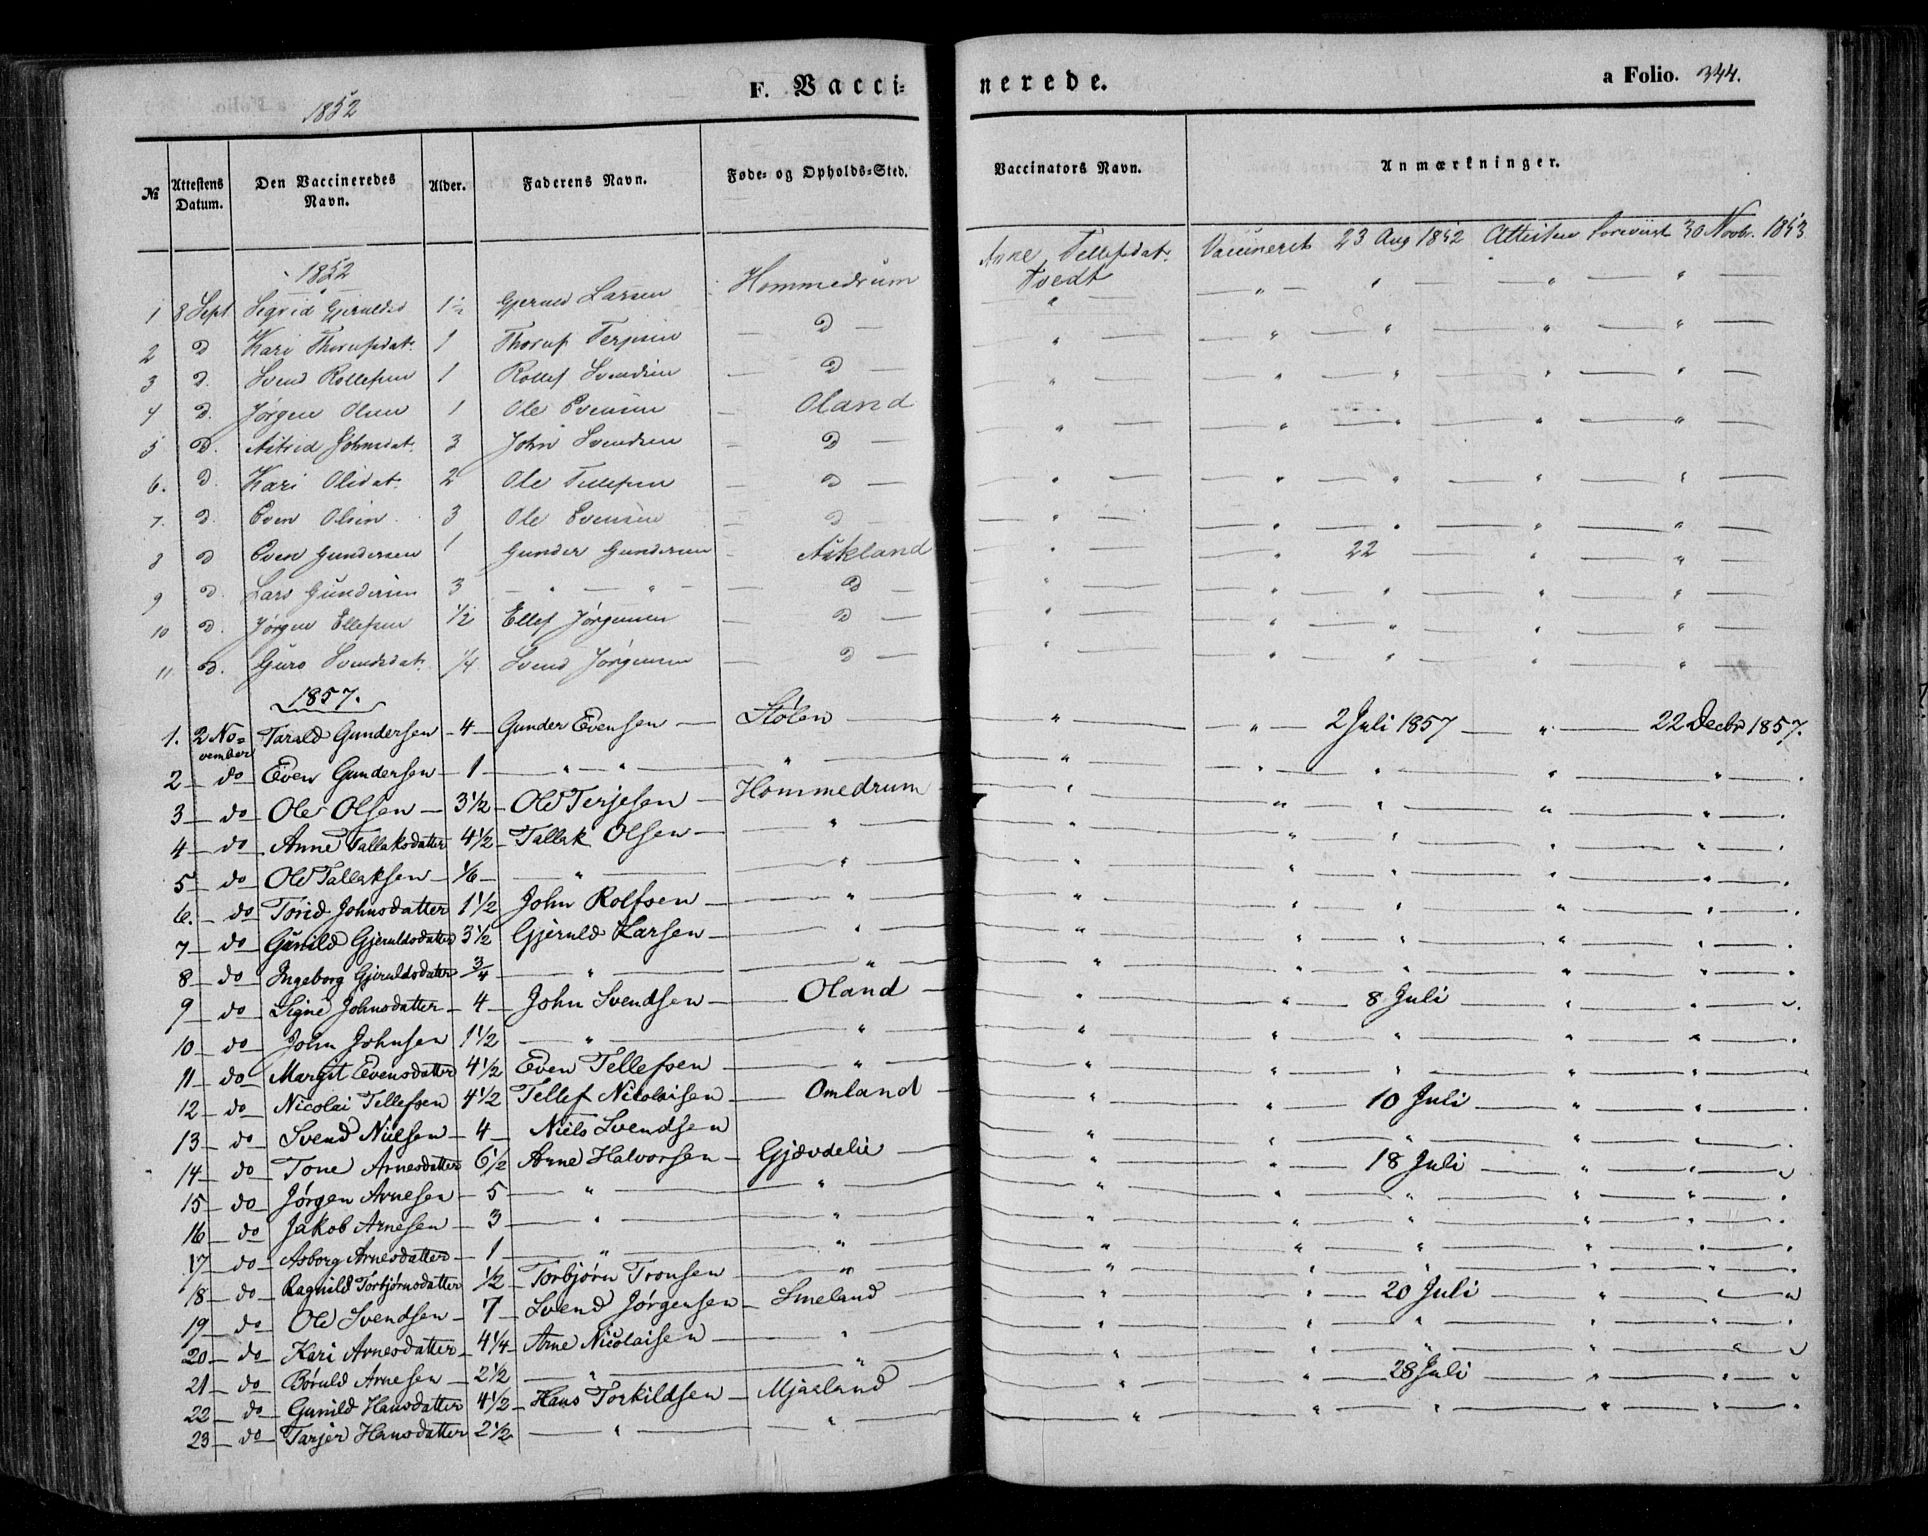 1852
F. Vaccinerede. a Folio. 344.
№ Attestens Datum. Den Vaccineredes Navn. Alder. Faderens Navn. Føde- og Opholds-Sted. Vaccinators Navn. Anmærkninger.
1852
1 8 Sept Sigrid Gjeruldsd 1½ Gjeruld Larsen Hommedrum Anne Tellefsdat. Tvedt Vaccineret 23 Aug 1852 Attesten foreviist 30 Novbr. 1853
2 D Kari Thorufsdat. 1 Thoruf Terjesen — D — " — " — " — " — "
3 D. Svend Rollefsen 1 Rollef Svendsen — D — " — " — " — " — "
4 D. Jørgen Olsen 1 Ole Evensen — Oland " — " — " — " — "
5 D. Astrid Johnsdat. 3 John Svendsen — D — " — " — " — " — "
6. D. Kari Olsdat. 2 Ole Tellefsen — D — " — " — " — " — "
7. D. Even Olsen 3 Ole Evensen — D — " — " — " — " — "
8 D Even Gundersen 1 Gunder Gundersen — Askland " — " — 22 — " — "
9 D. Lars Gundersen 3 — " — " — D — " — " — " — " — "
10 D. Jørgen Ellefsen 1/2 Ellef Jørgensen — D — " — " — " — " — "
11 D. Guro Svendsdat. 1/4 Svend Jørgensen — D — " — " — " — " — "
1857.
1. 2 November Tarald Gundersen — 4 — Gunder Evensen — Stølen — " — " — 2 Juli 1857 — " — 22 Decbr 1857.
2 — do Even Gundersen — 1 — " — " — " — " — " — " — " — " .
3 — do — Ole Olsen — 3 1/2 — Ole Terjesen — Hommedrum — " — " — " — " — " .
4 — do — Anne Tallaksdatter 4 1/2 — Tallak Olsen — " — " — " — " — " — "
5 — do — Ole Tallaksen — 1/6 — " — " — " — " — " — " — "
6. — do — Torid Johnsdatter 1 1/2 John Rolfsen — " — " — " — " — " — "
7 — do — Gunild Gjeruldsdatter 3 1/2 Gjeruld Larsen — " — " — " — " — " — "
8 — do — Ingeborg Gjeruldsdatter 3/4 — " — " — " — " — " — " — "
9 — do — Signe Johnsdatter — 4 — John Svendsen — Oland — " — " — 8 Juli — " — " .
10 — do — John Johnsen 1 1/2 — " — " — " — " — " — " — "
11 — do — Margit Evensdatter 4 1/2 Even Tellefsen — " — " — " — " — " — "
12 — do — Nicolai Tellefsen 4 1/2 Tellef Nicolaisen — Omland — " — " — 10 Juli — " — " .
13 — do — Svend Nielsen — 4 — Niels Svendsen " — " — " — " — "
14 — do — Tone Arnesdatter 6 1/2 Arne Halvorsen — Gjævdelie — " — " — 18 Juli — " — "
15 — do Jørgen Arnesen — 5 — " — " — " — " — " — " — "
16 — do — Jakob Arnesen — 3 — " — " — " — " — " — " — "
17 — do — Asborg Arnesdatter — 1 — " — " — " — " — " — " — "
18 — do — Ragnild Torbjørnsdatter 1/2 — Torbjørn Tronsen — " — " — " — " — " — "
19 — do — Ole Svendsen — 7 — Svend Jørgensen — Smeland — " — " — 20 Juli — " — "
20 — do — Kari Arnesdatter — 4 1/4 — Arne Nicolaisen — " — " — " — " — " — "
21 — do — Børuld Arnesen — 2 1/2 — " — " — " — " — " — " — "
22 — do — Gunild Hansdatter 4 1/2 — Hans Torkildsen — Mjaaland — " — " — 28 Juli — " — " .
23 — do — Tarjer Hansdatter 2 1/2 — " — " — " — " — " — " — " .